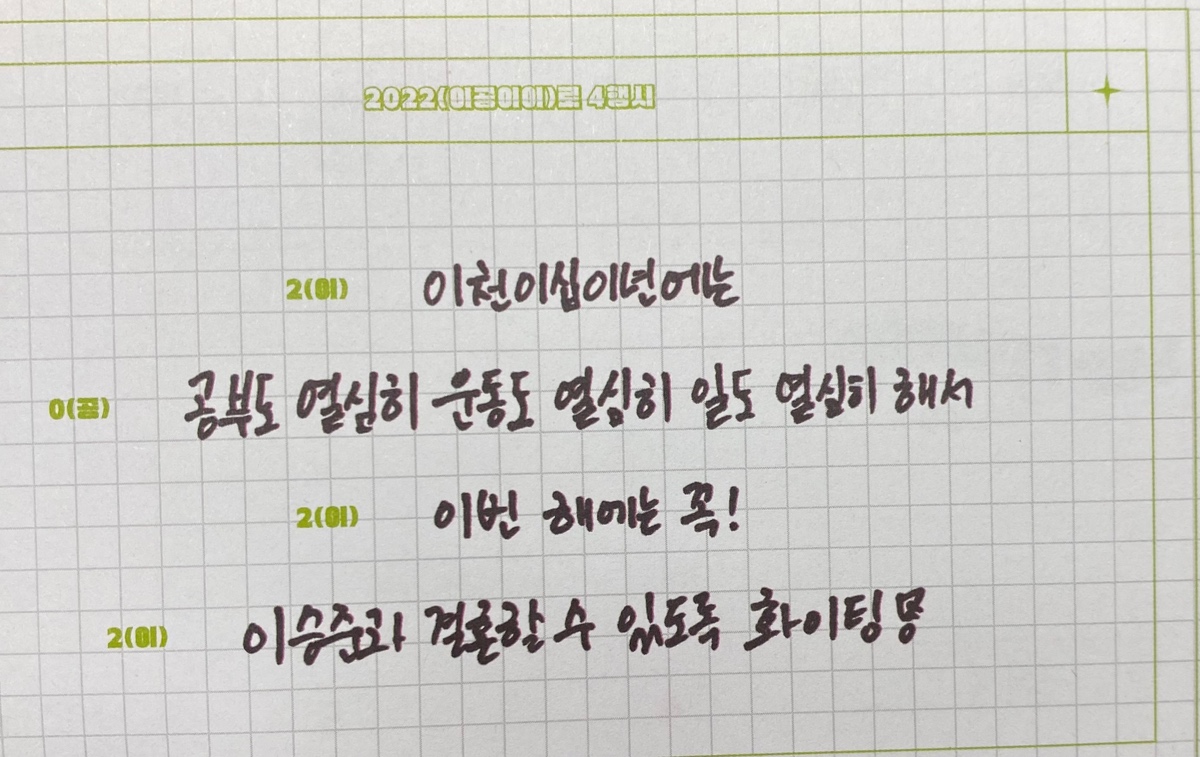 2022(이공이이)로 4행시
2(이) 이천이십이년에는
0(공) 공부도 열심히 운동도 열심히 일도 열심히 해서
2(이) 이번 해에는 꼭!
2(이) 이승준과 결혼할 수 있도록 화이팅 뭉